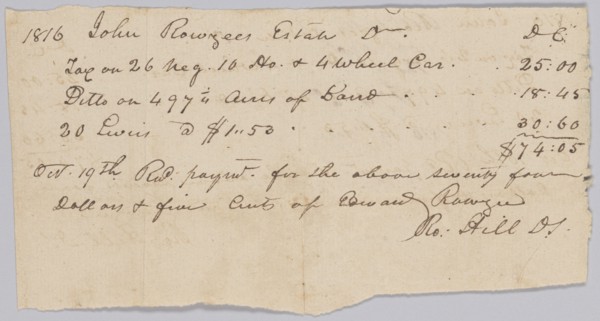 1816 John Rowzees Estate Dr. D C
Tax on 26 Neg. 10 Ho. & 4 Wheel Car. . . 25:00
Ditto on 497 Acres of Land . . 18:45
20 Levies @ $1..53 . . . . . 30:60
$74:05
Oct. 19th Recd. paymt. for the above seventy four
Dollars & five Cents of Edward Rowzee
Ro: Hill DS.